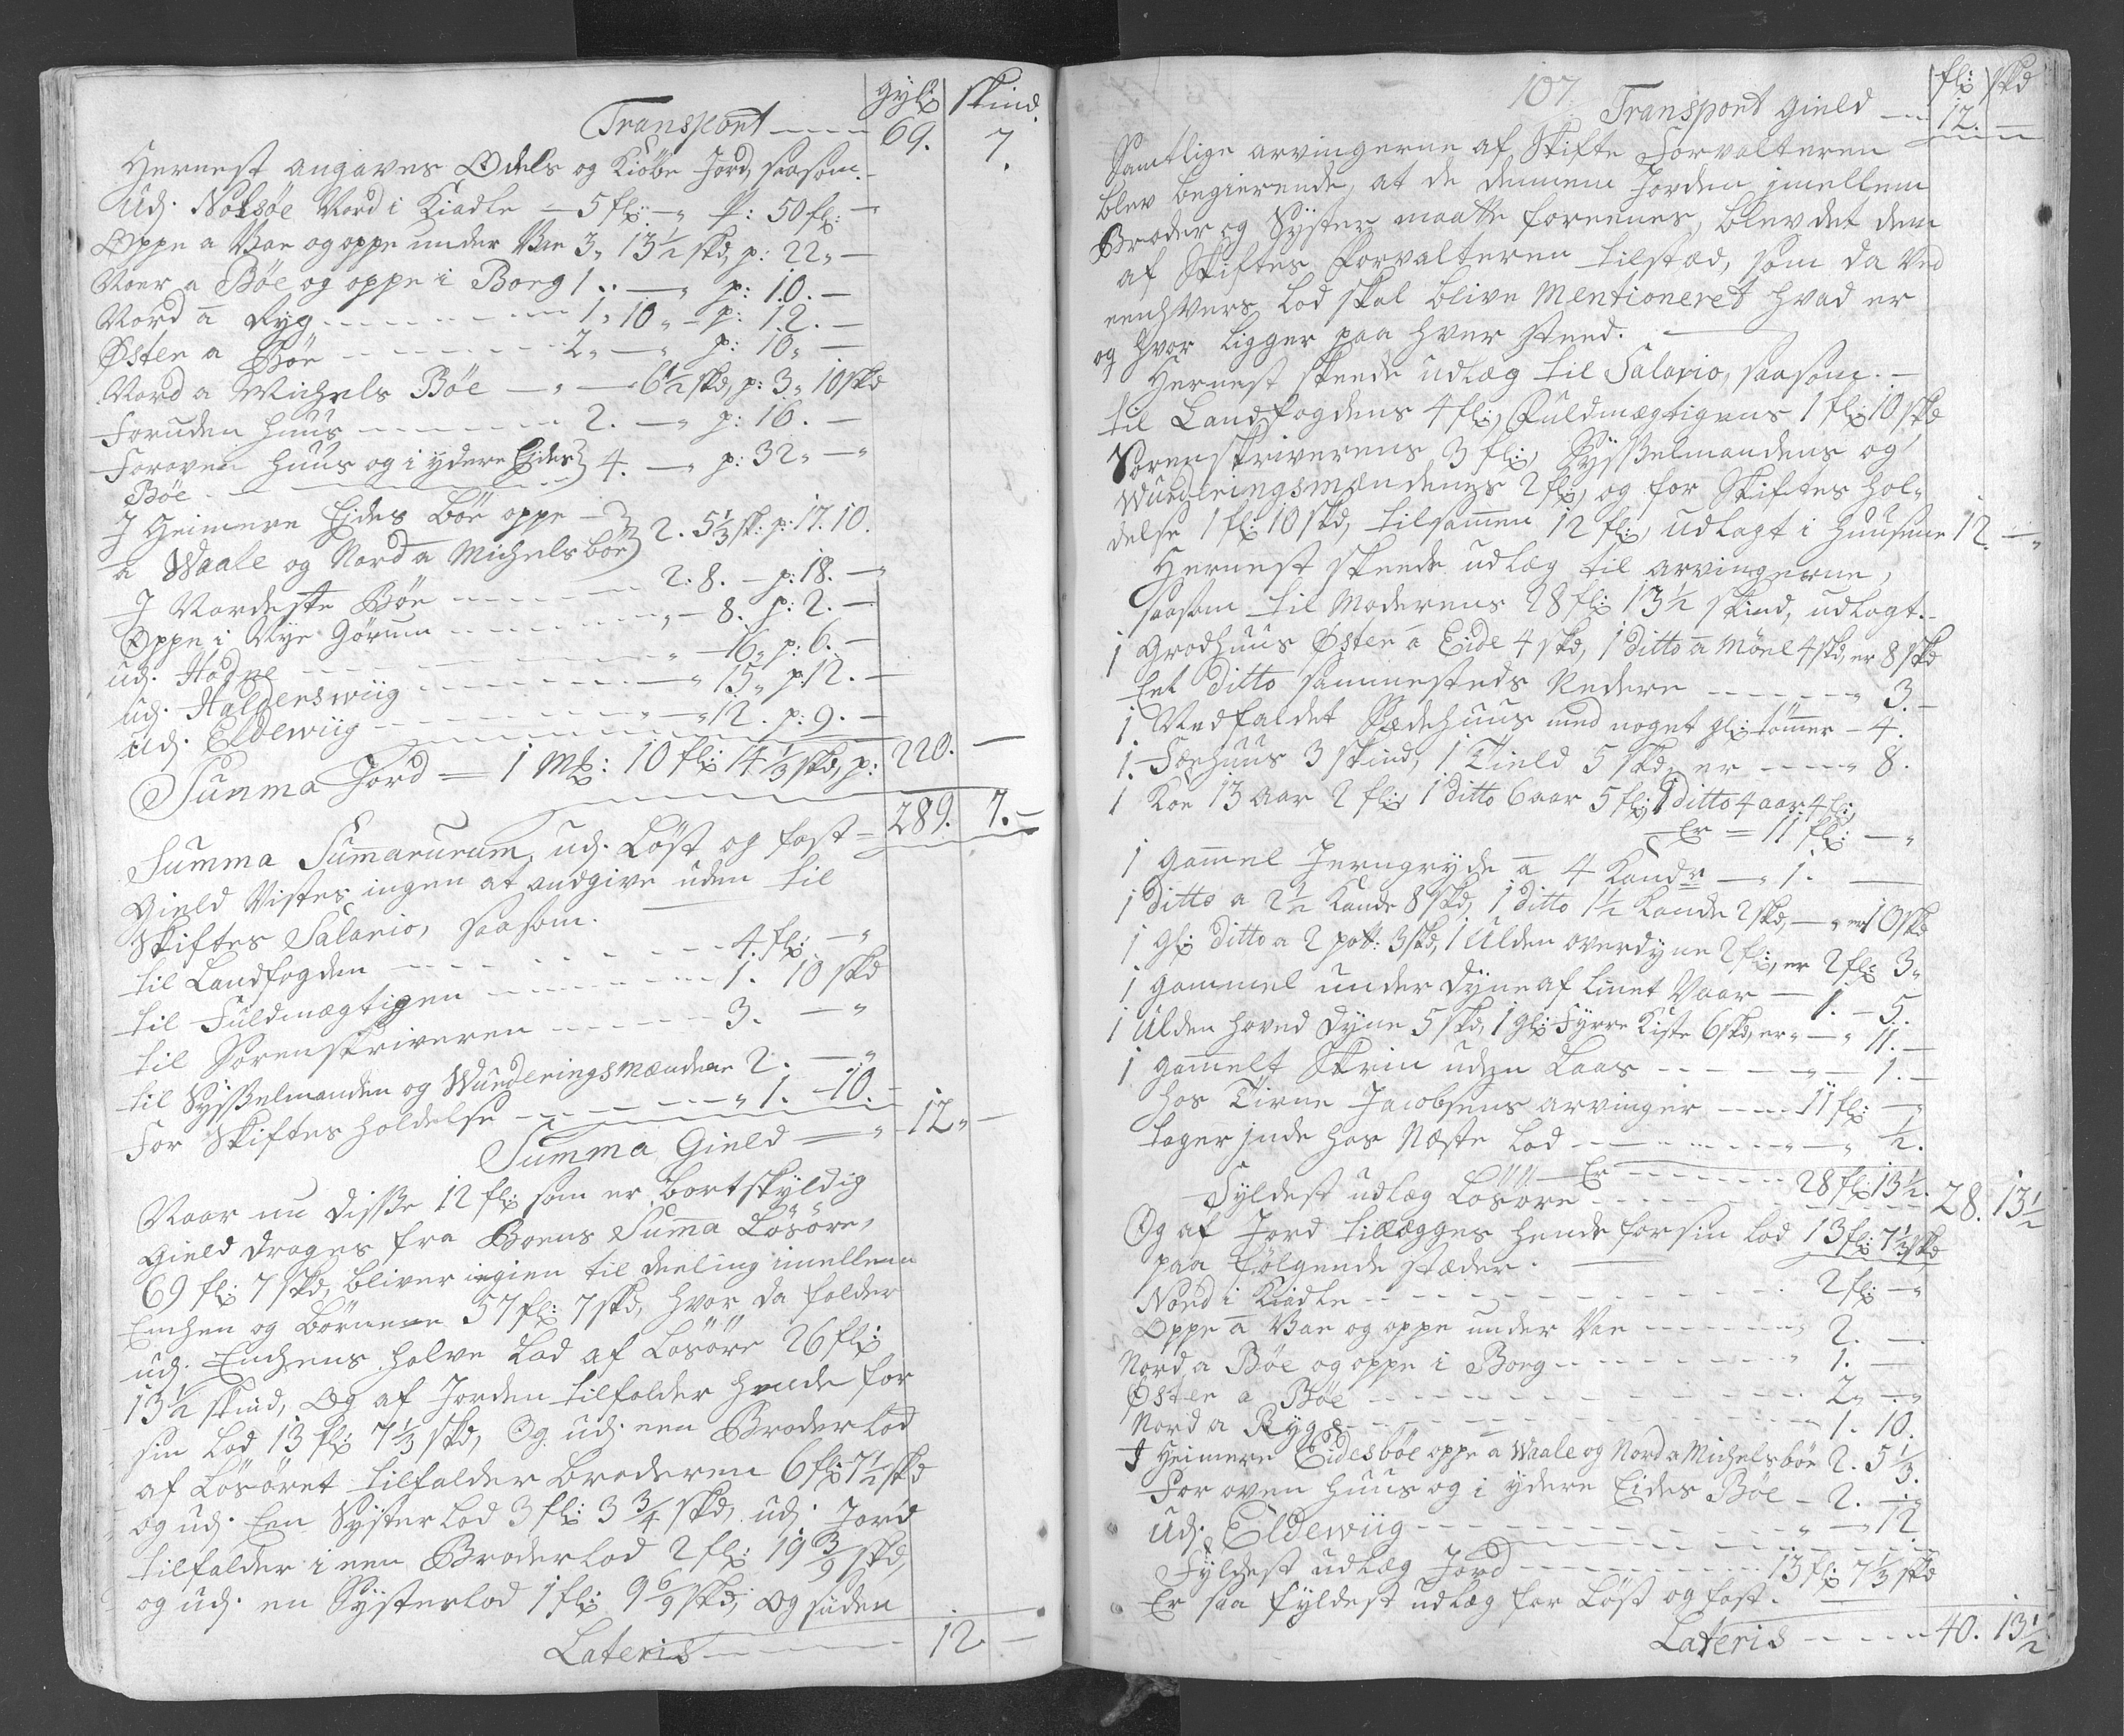 gyl: skind.
Transport - - - 69. 7.
Hernest angaves Odels og Kiöbe Jord, saasom.
Udj. Nolsöe Nord i Kiadle - 5 fl: - „ p: 50 fl: -
Oppe a Bae og oppe under Bae 3„ 13½ skd, p: 22„ -
Noer a Böe og oppe i Borg 1 „ - „ p: 10. -
Nord ā Ryg - - - - 1„ 10„ - p: 12. -
Østen a Böe - - - - 2„ - „ p: 10„ -
Nord a Michels Böe - „ - 6½ skd, p: 3„ 10 skd
Foruden huus - - - - 2. - „ p: 16. -
Foroven huus og i ydere Ejdes } 4. - „ p: 32„ - „
Böe - - - -
I Heimere Ejdes Böe oppe - } 2. 5⅓ sk: p: 17. 10.
a Waale og Nord a Michelsböe }
I Nordeste Böe - - - - 2. 8. - p: 18. - „
Oppe i Nÿe Görum - - - - „ - 8. p: 2. -
udj. Hodne - - - - „ - 16„ p: 6. -
udj. Haldenswiig - - - - „ 15„ p: 12. -
udj. Eldewiig - - - - „ - 12. p: 9. -
Summa Jord = 1 Mk: 10 fl: 14⅓ skd, p: 220. -
Summa Sum̄arurum, udj. Löst og fast = 289. 7. -
Gield Vistes ingen at andgive uden til
Skiftes Salario, saasom.
til Landfogden - - - - 4. fl: - „
til Fuldmægtigen - - - - 1. 10 skd
til Sorenskriveren - - - - 3. - „
til Sÿsselmanden og Wurderingsmændene 2. - „
For Skiftes holdelse - - - - „ 1. - 10. -
Summa Gield = „ 12„ -
Naar nu disse 12 fl: som er bortskÿldig
Gield drages fra Boens Sum̄a Lösöre,
69 fl: 7 skd, bliver igien til deeling imellem
Enchen og Börnene 57 fl: 7 skd, hvor da falder
udj. Enchens halve Lod af Lösöre 26 fl:
13½ skind, Og af Jorden tilfalder hende for
sin Lod 13 fl: 7⅓ skd, Og udj een Broderlod
af Lösöret tilfalder Broderen 6 fl: 7½ skd
og udj. Een Sÿster Lod 3 fl: 3¾ skd, udj. Jord
tilfalder i een Broderlod 2 fl: 19 3/9 skd,
og udj. en Sÿsterlod 1 fl: 9 6/9 skd, Og siden
Lateris - - - - 12. -
107 fl: skd
Transport Gield - - 12. -
Samtlige arvingerne af Skifte Forvalteren
blev begierende, at de dennem Jorden imellem
Broder og Sÿster maatte foreenes, blev det dem
af Skiftes Forvalteren tilstæd, som da ved
eenhvers Lod skal blive Mentioneret hvad er
og hvor ligger paa hver steed.
Hernest skeede udlæg til Salario, saasom. -
til Landfogdens 4 fl:, Fuldmægtigens 1 fl: 10 skd
Sorenskriverens 3 fl:, Sÿsselmandens og
Wurderingsmændenes 2 fl:, og for Skiftes hol-
delse 1 fl: 10 skd, tilsam̄en 12 fl:, udlagt i huusene 12. - „
Hernest skeede udlæg til arvingerne,
saasom til Moderens 28 fl: 13½ skind, udlagt. -
1 Grodhuus Østen ā Eide 4 skd, 1 ditto ā Möel 4 skd, er 8 skd
Eet Ditto sammesteds Nedere - - - - „ 3. -
1. Nedfaldet Sædehuus med noget gl: töm̄er - 4.
1. Foehuus 3 skind, 1 Tield 5 skd, er - - - - „ 8.
1 Koe 13 aar 2 fl:, 1 ditto 6 aar 5 fl:, 1 ditto 4 aar 4 fl:
Er = 11 fl: - „
1 gam̄el Jerngryde ā 4 Kander - „ 1. -
1 ditto a 2½ Kande 8 skd, 1 ditto 1½ Kande 2 skd, - „ er 10 skd
1 gl: ditto a 2 pott: 3 skd, 1 Ulden overdyne 2 fl:, er 2 fl: 3„
1 gammel under Dÿne af linet Vaar - 1. - 5.
1 Ulden hoved Dyne 5 skd, 1 gl: Fÿrre Kiste 6 skd, er „ - „ 11. -
1 gam̄elt Skrin uden Laas - - - - „ - 1. -
hos Tirne Jacobsens arvinger - - - - 11 fl: - „
tager inde hos Næste Lod - - - - „ - „ ½.
Er - - - - 28 fl: 13½.
Fÿldest udlæg Lösöre - - - - 28. 13½
Og af Jord tillægges hende for sin Lod 13 fl: 7⅓ skd
paa fölgende stæder. -
Nord i Kiadle - - - - 2 fl: - „
Oppe ā Bae og oppe under Bae - - - - 2. -
Nord a Böe og oppe i Borg - - - - „ 1. -
Østen a Böe - - - - 2„ - „
Nord a Ryg - - - - 1. 10.
I Heimere Eidesböe oppe ā Waale og Nord a Michelsböe 2. 5⅓.
For oven huus og i ydere Eides Böe - 2. - „
Udj. Eldewiig - - - - „ - 12
Fÿldest udlæg Jord - - - - 13 fl: 7⅓ skd
Er saa fÿldest udlæg for Löst og fast.
Lateris - - - - 40. 13½